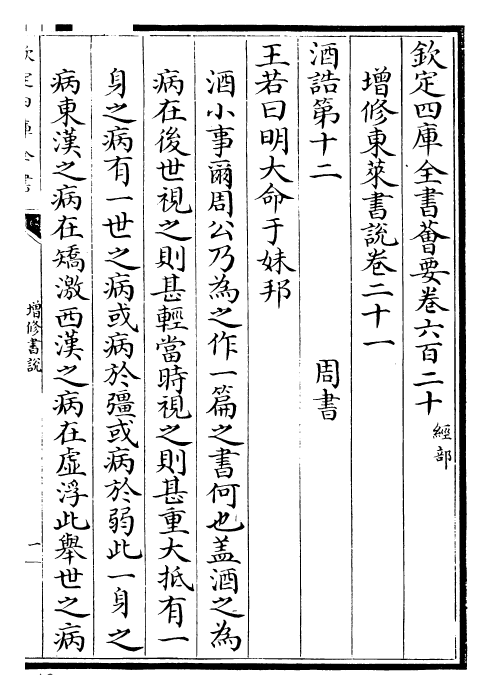 欽定四庫全書薈要卷六百二十 經部
增修東萊書說卷二十一
酒誥第十二 周書
王若曰明大命于妹邦
酒小事爾周公乃為之作一篇之書何也蓋酒之為
病在後世視之則甚輕當時視之則甚重大抵有一
身之病有一世之病或病於彊或病於弱此一身之
病東漢之病在矯激西漢之病在虛浮此舉世之病
欽定四庫全書
增修書說
一